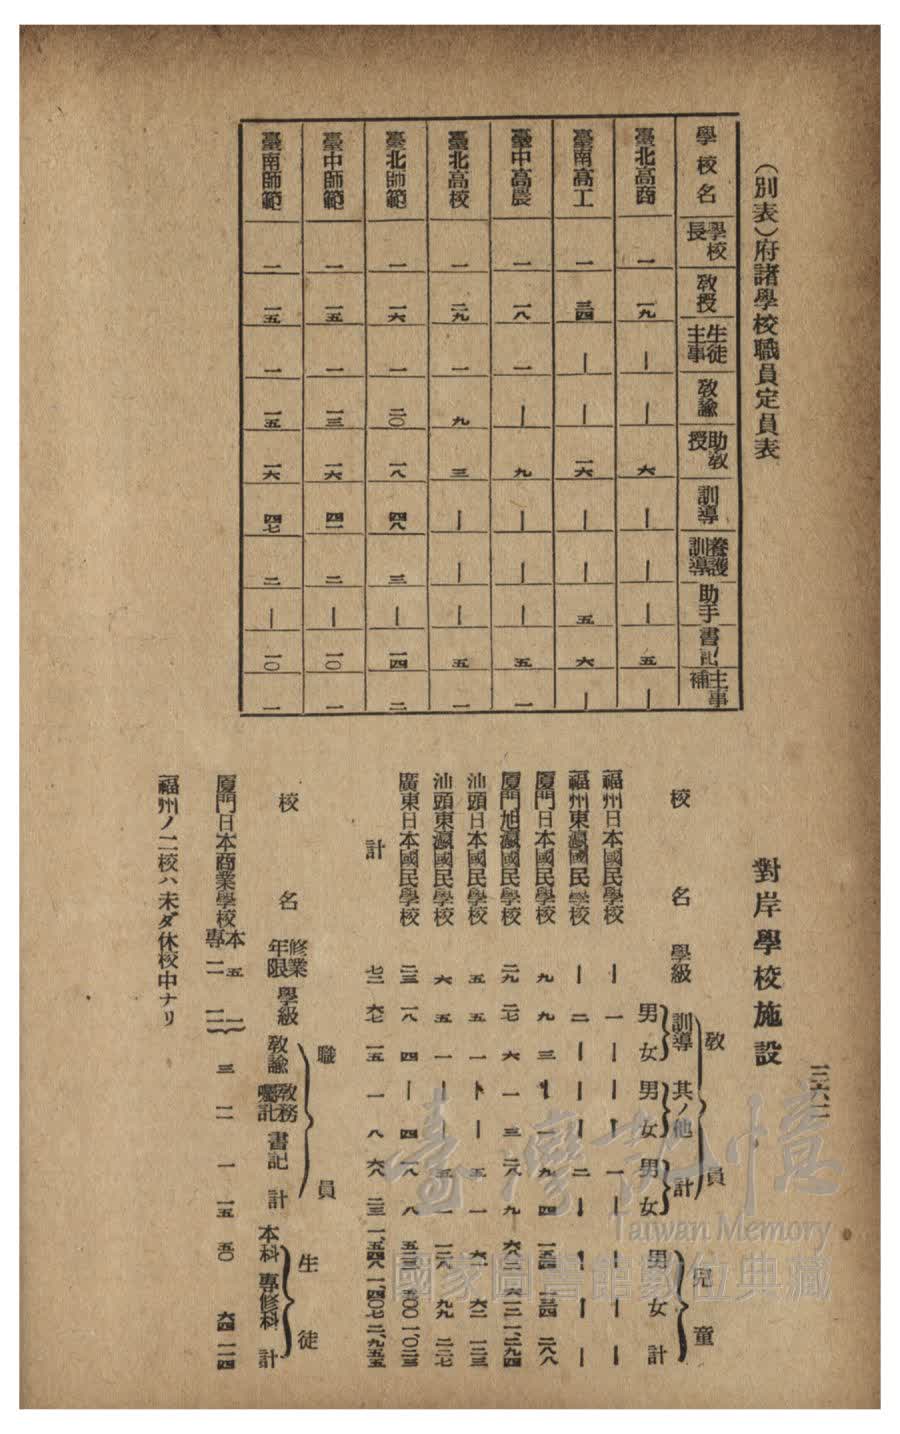 三六二
(別表)府諸學校職員定員表
學校名 學校長 教授 生徒主事 教諭 助教授 訓導 養護訓導 助手 書記 主事補
臺北高商 一 一九 ｜ ｜ 六 ｜ ｜ ｜ 五 ｜
臺南高工 一 三四 ｜ ｜ 一六 ｜ ｜ 五 六 ｜
臺中高農 一 一八 一 ｜ 九 ｜ ｜ ｜ 五 一
臺北高校 一 二九 一 九 三 ｜ ｜ ｜ 五 一
臺北師範 一 一六 一 二〇 一八 四八 三 ｜ 一四 二
臺中師範 一 一五 一 一三 一六 四一 二 ｜ 一〇 一
臺南師範 一 一五 一 一五 一六 四七 二 ｜ 一〇 一
對岸學校施設
校名 學級 教員 訓導 男 女 其ノ他 男 女 計 男 女 兒童 男 女 計
福州日本國民學校 ｜ 一 ｜ ｜ ｜ 一 ｜ ｜ ｜ ｜
福州東瀛國民學校 ｜ 二 ｜ ｜ ｜ 二 ｜ ｜ ｜ ｜
廈門日本國民學校 九 九 三 ｜ 一 九 四 一五四 一三四 二八八
廈門旭瀛國民學校 二九 二七 六 一 三 二八 九 六八二 六一二 一、二九四
汕頭日本國民學校 五 五 一 ｜ ｜ 五 一 六一 六二 一二三
汕頭東瀛國民學校 六 五 一 ｜ ｜ 五 一 一二八 九九 二二七
廣東日本國民學校 二三 一八 四 ｜ 四 一八 八 五二三 五〇〇 一、〇二三
計 七二 六七 一五 一 八 六八 二三 一、五四八 一、四〇七 二、九五五
校名 修業年限 學級 職員 教諭 教務囑託 書記 計 生徒 本科 專修科 計
廈門日本商業學校 本 五 一 專 二 二 三 二 一 一五 五〇 六四 一一四
福州ノ二校ハ未ダ休校中ナリ
臺灣記憶
Taiwan Memory
國家圖書館數位典藏